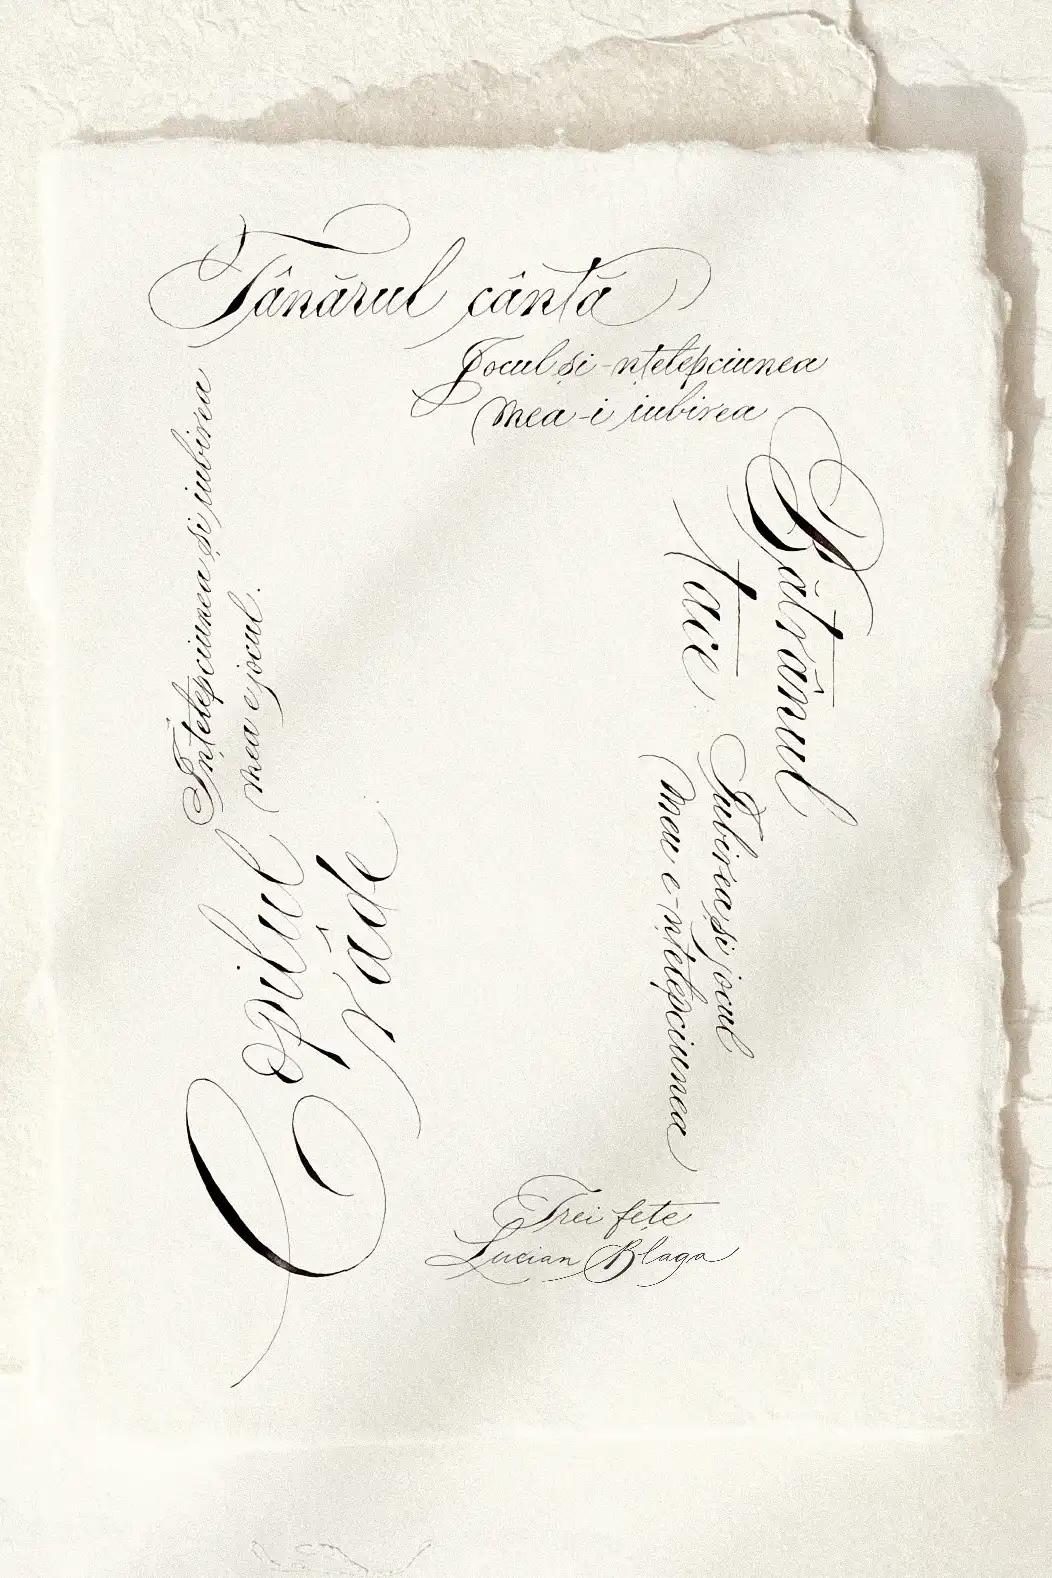 Copilul
râde
Înțelepciunea și iubirea
mea e jocul.
Tânărul cântă
Jocul și-nțelepciunea
mea-i iubirea
Bătrânul
tace
Iubirea și jocul
meu e-nțelepciunea
Trei fețe
Lucian Blaga